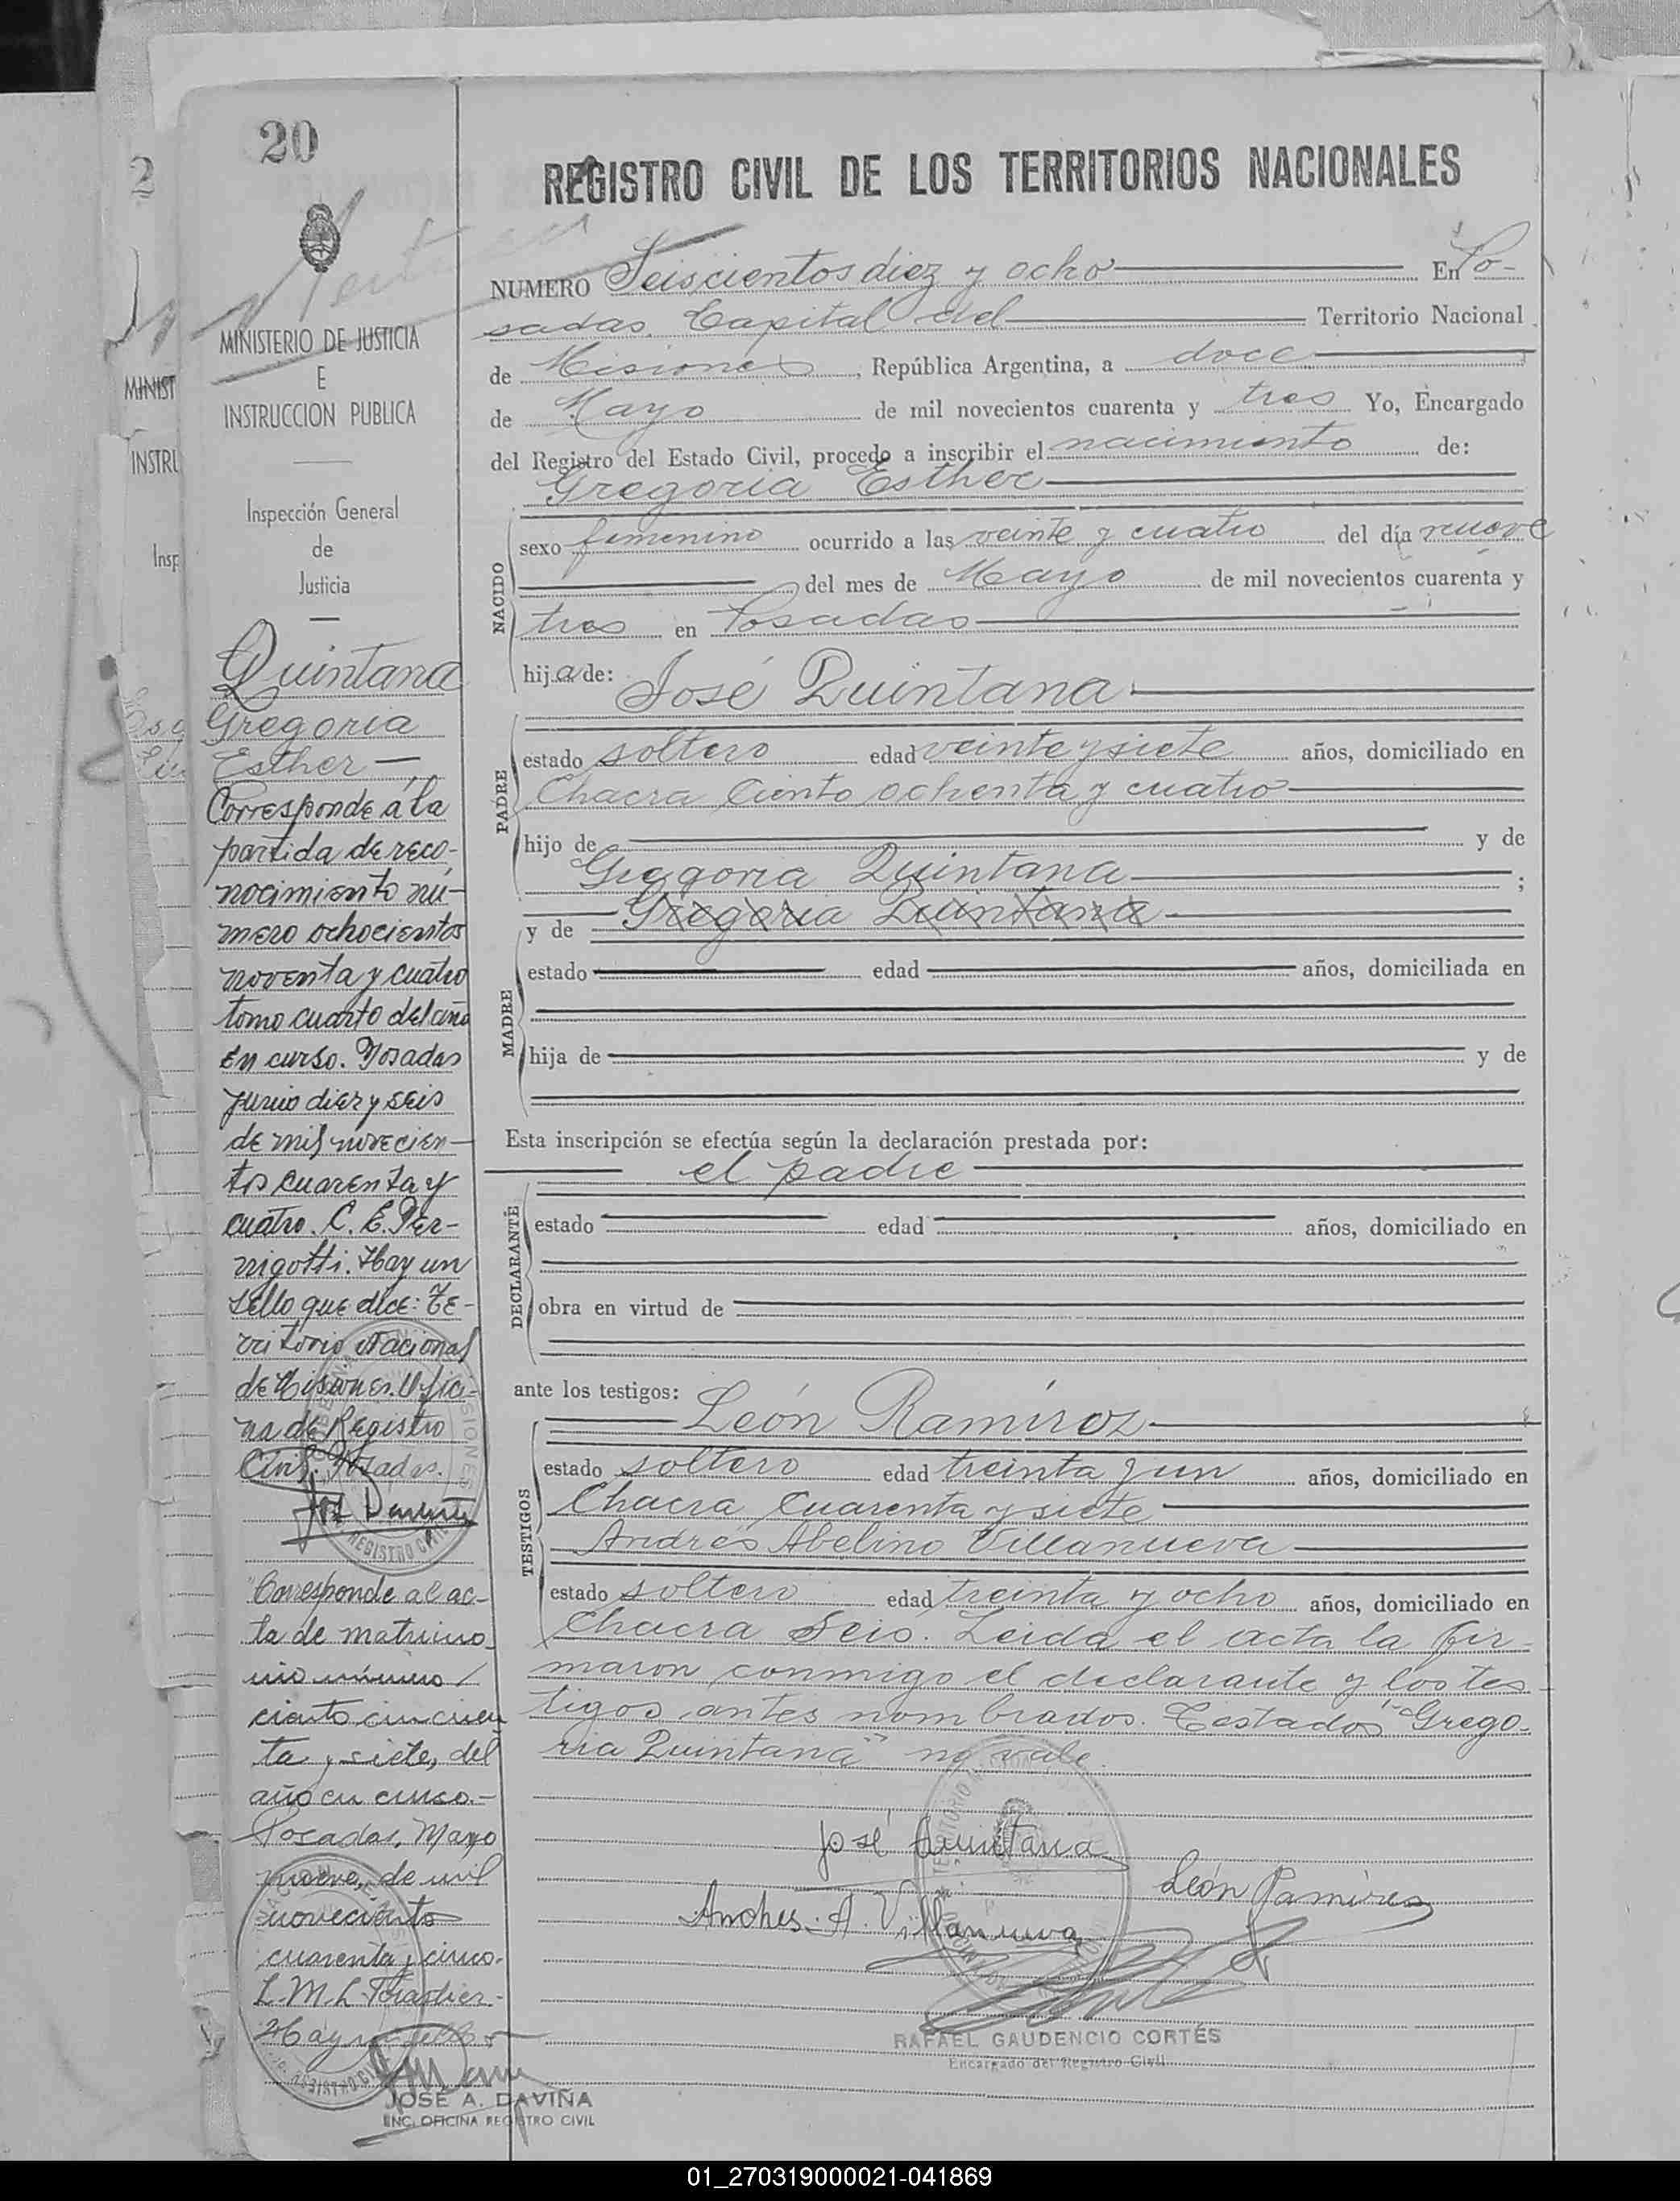 20
2
MINISTERIO DE JUSTICIA
E
INSTRUCCION PUBLICA
Inspección General
de
Justicia
MINIST
INSTRU
Insp
Quintana
Gregoria
Esther —
Corresponde á la
partida de reco-
nocimiento nú-
mero ochocientos
noventa y cuatro
tomo cuarto del año
en curso. Posadas
junio diez y seis
de mil novecien-
tos cuarenta y
cuatro. C. E. Per-
nigotti. Hay un
sello que dice: Te-
rritorio Nacional
de Misiones. Ofici-
na de Registro
Civil. Posadas.
Corresponde al ac-
ta de matrimo-
nio número
ciento cincuen
ta y siete, del
año en curso.-
Posadas, Mayo
nueve, de mil
novecientos
cuarenta y cinco.
Hay un sello
JOSÉ A. DAVIÑA
ENC. OFICINA REGISTRO CIVIL
REGISTRO CIVIL DE LOS TERRITORIOS NACIONALES
NUMERO Seiscientos diez y ocho En Po-
sadas. Capital del Territorio Nacional
de Misiones, República Argentina, a doce
de Mayo de mil novecientos cuarenta y tres Yo, Encargado
del Registro del Estado Civil, procedo a inscribir el nacimiento de:
Gregoria Esther
NACIDO
sexo femenino ocurrido a las veinte y cuatro del día nueve
del mes de Mayo de mil novecientos cuarenta y
tres en Posadas
hija de: José Quintana
PADRE
estado soltero edad veinte y siete años, domiciliado en
Chacra Ciento ochenta y cuatro
hijo de y de
Gregoria Quintana ;
y de Gregoria Quintana
MADRE
estado edad años, domiciliada en
hija de y de
Esta inscripción se efectúa según la declaración prestada por:
el padre
DECLARANTE
estado edad años, domiciliado en
obra en virtud de
ante los testigos: León Ramirez
TESTIGOS
estado soltero edad treinta y un años, domiciliado en
Chacra Cuarenta y siete
Andrés Abelino Villanueva
estado soltero edad treinta y ocho años, domiciliado en
Chacra Seis. Leida el acta la fir-
maron conmigo el declarante y los tes
tigos antes nombrados. Testados "Grego-
ria Quintana" no vale.
José Quintana
León Ramirez
Andres. A. Villanueva
RAFAEL GAUDENCIO CORTÉS
Encargado del Registro Civil
01_270319000021-041869